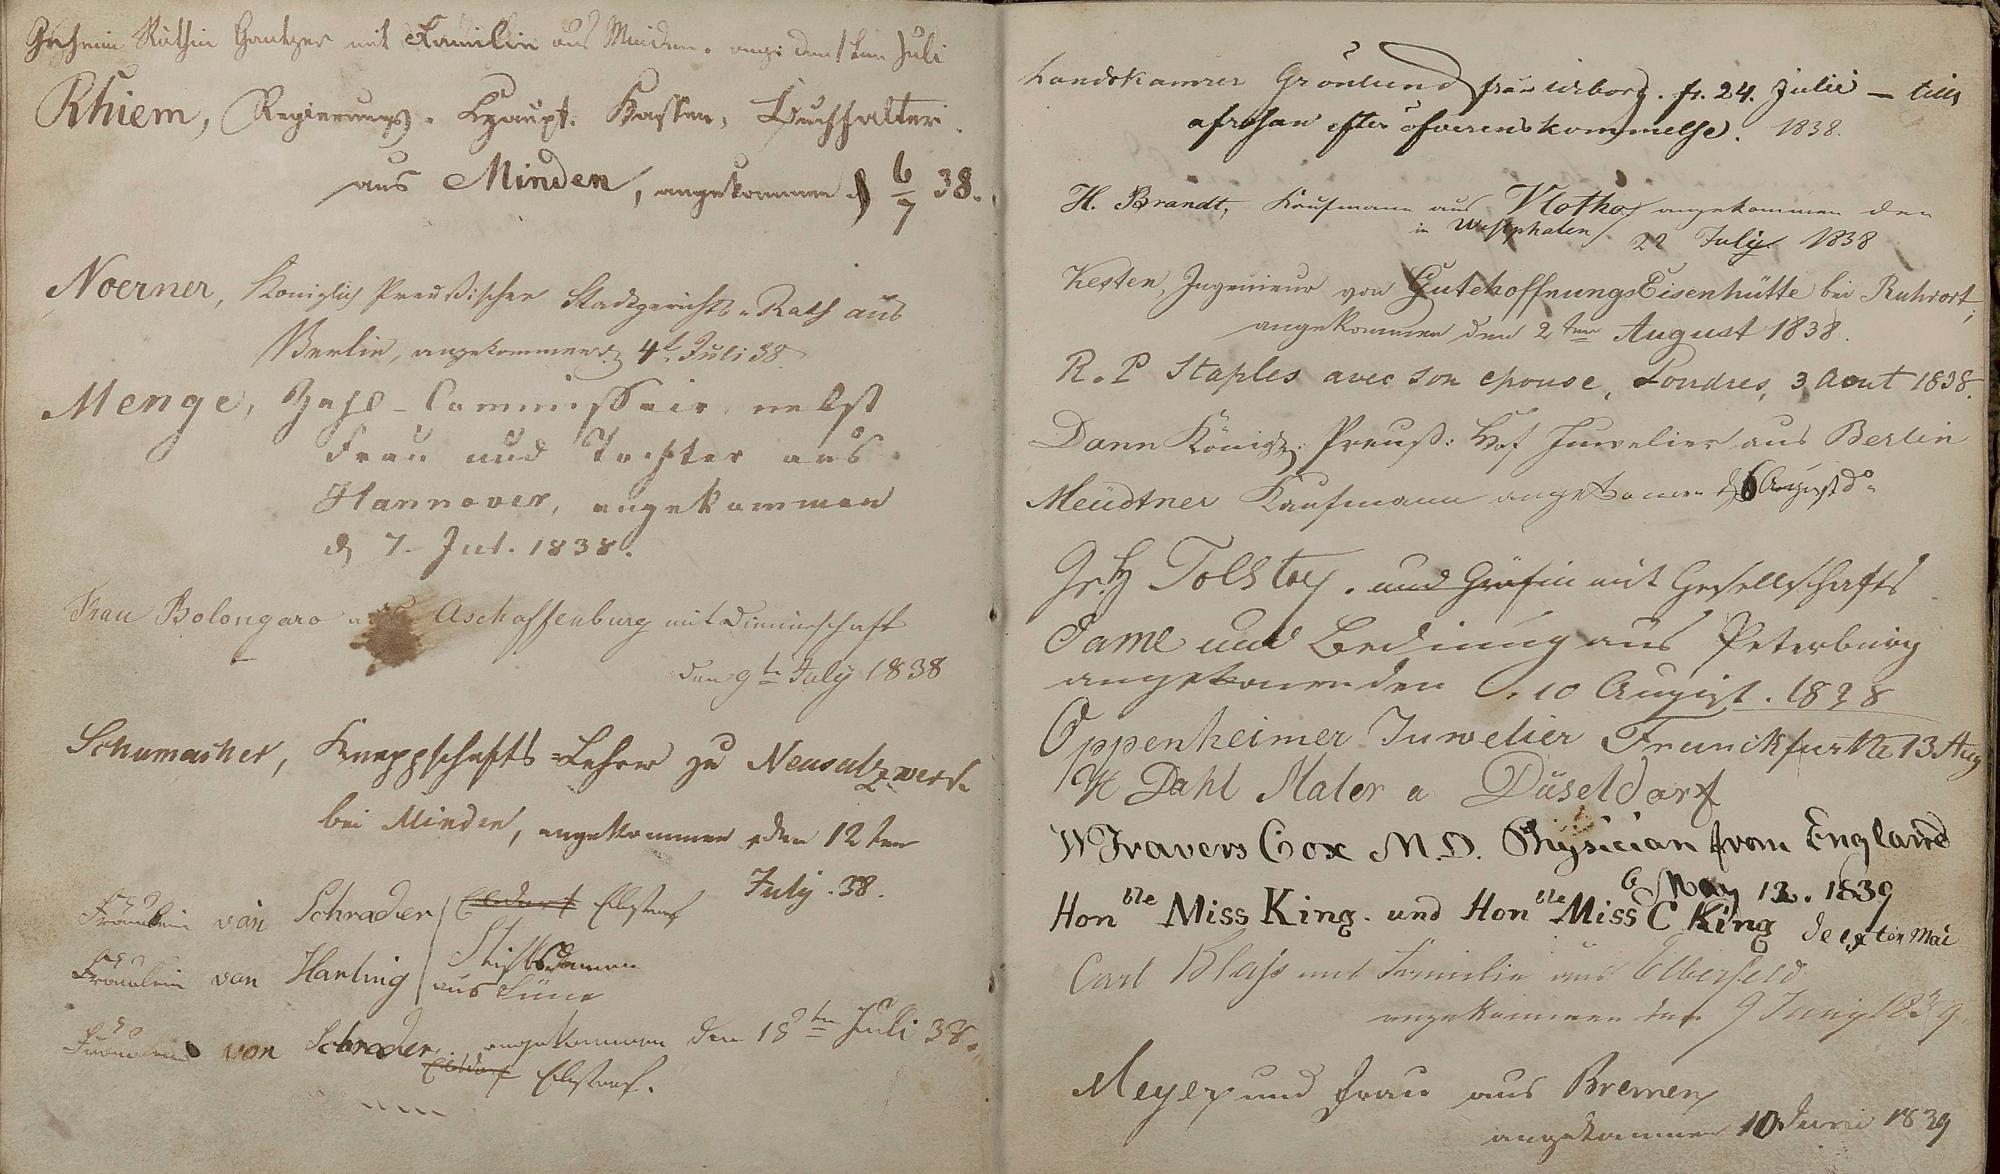 Geheim Räthin Hantzer mit Familie aus Minden. ang: den 1ten Juli
Rhiem, Regierungs-Haupt-Kassen-Buchhalter
aus Minden, angekommen d 6/7 38.
Noerner, Königlich Preußischer Stadtgerichts-Rath aus
Berlin, angekommen d 4t Juli 38
Menge, Zahl-Commissair nebst
Frau und Tochter aus
Hannover, angekommen
d 7. Jul. 1838.
Frau Bolongaro aus Aschaffenburg mit Dienerschaft
den 9tn July 1838
Schumacher, Knappschafts-Lehrer zu Neusalzwerk
bei Minden, angekommen den 12ten
July. 38.
Fräulein von Schrader Ebstorf
Stiftsdamen
Fräulein von Harling aus Lüne
Fräulein von Schrader angekommen den 18tn Juli 38.
Ebstorf.
Landskamrer Grönlund från Wiborg. fr. 24. Julii — till
afresan efter öfverenskommelse. 1838.
H. Brandt, Kaufmann aus Vlotho angekommen den
in Westphalen 22 July 1838
Kesten, Ingenieur von GutehoffnungsEisenhütte bei Ruhrort,
angekommen den 2ten August 1838.
R. P Staples avec son epouse, Londres, 3 Aout 1838.
Dann Königl: Preuß: Hof Juwelier aus Berlin
Meüdtner Kaufmann angekomen d 6 August do
Tolstoy. und Gräfin mit Gesellschafts
Dame und Bedinung aus Peterburg
angekomen den 10 August. 1838
Oppenheimer Juwelier Franckfurt 13 Aug
H Dahl Maler a Düseldorf
W Travers Cox M.D. Physician from England
May 12. 1839
Honble Miss King. und Honble Miss C King de ton Mai
Carl Blass und Familie aus Elberfeld
angekommen den 9 Juny 1839.
Meyer und Frau aus Bremen
angekommen 10 Juni 1839